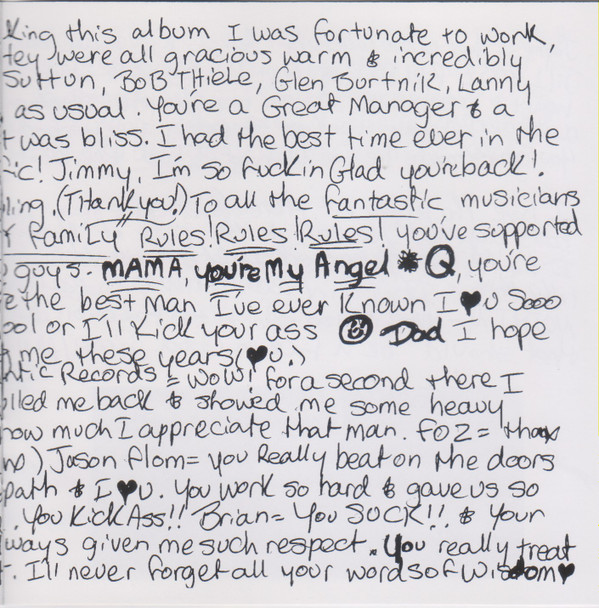 king this album I was fortunate to work,
hey were all gracious warm & incredibly
Sutton, BOB THIELE, Glen Burtnik, Lanny
as usual. You're a Great Manager & a
t was bliss. I had the best time ever in the
ic! Jimmy, I'm so fuckin Glad you're back!
ling. (Thank you!) To all the fantastic musicians
Y FAMILY Rules! Rules! Rules! you've supported
guys. MAMA, you're My Angel * Q, you're
e the best man I've ever known I ♥ U Sooo
ool or I'll Kick your ass ☺ Dad I hope
me these years (♥ u.)
ntic Records = WOW! for a second there I
lled me back & showed me some heavy
how much I appreciate that man. FOZ = thanx
) Jason Flom = you Really beat on the doors
path & I ♥ U. You work so hard & gave us so
. You Kick Ass!! Brian = You SUCK!! & Your
ways given me such respect. You really treat
t. I'll never forget all your words of wisdom ♥